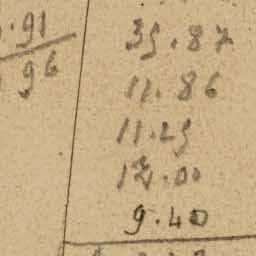 .91
96
35.87
11.86
11.25
12.00
9.40